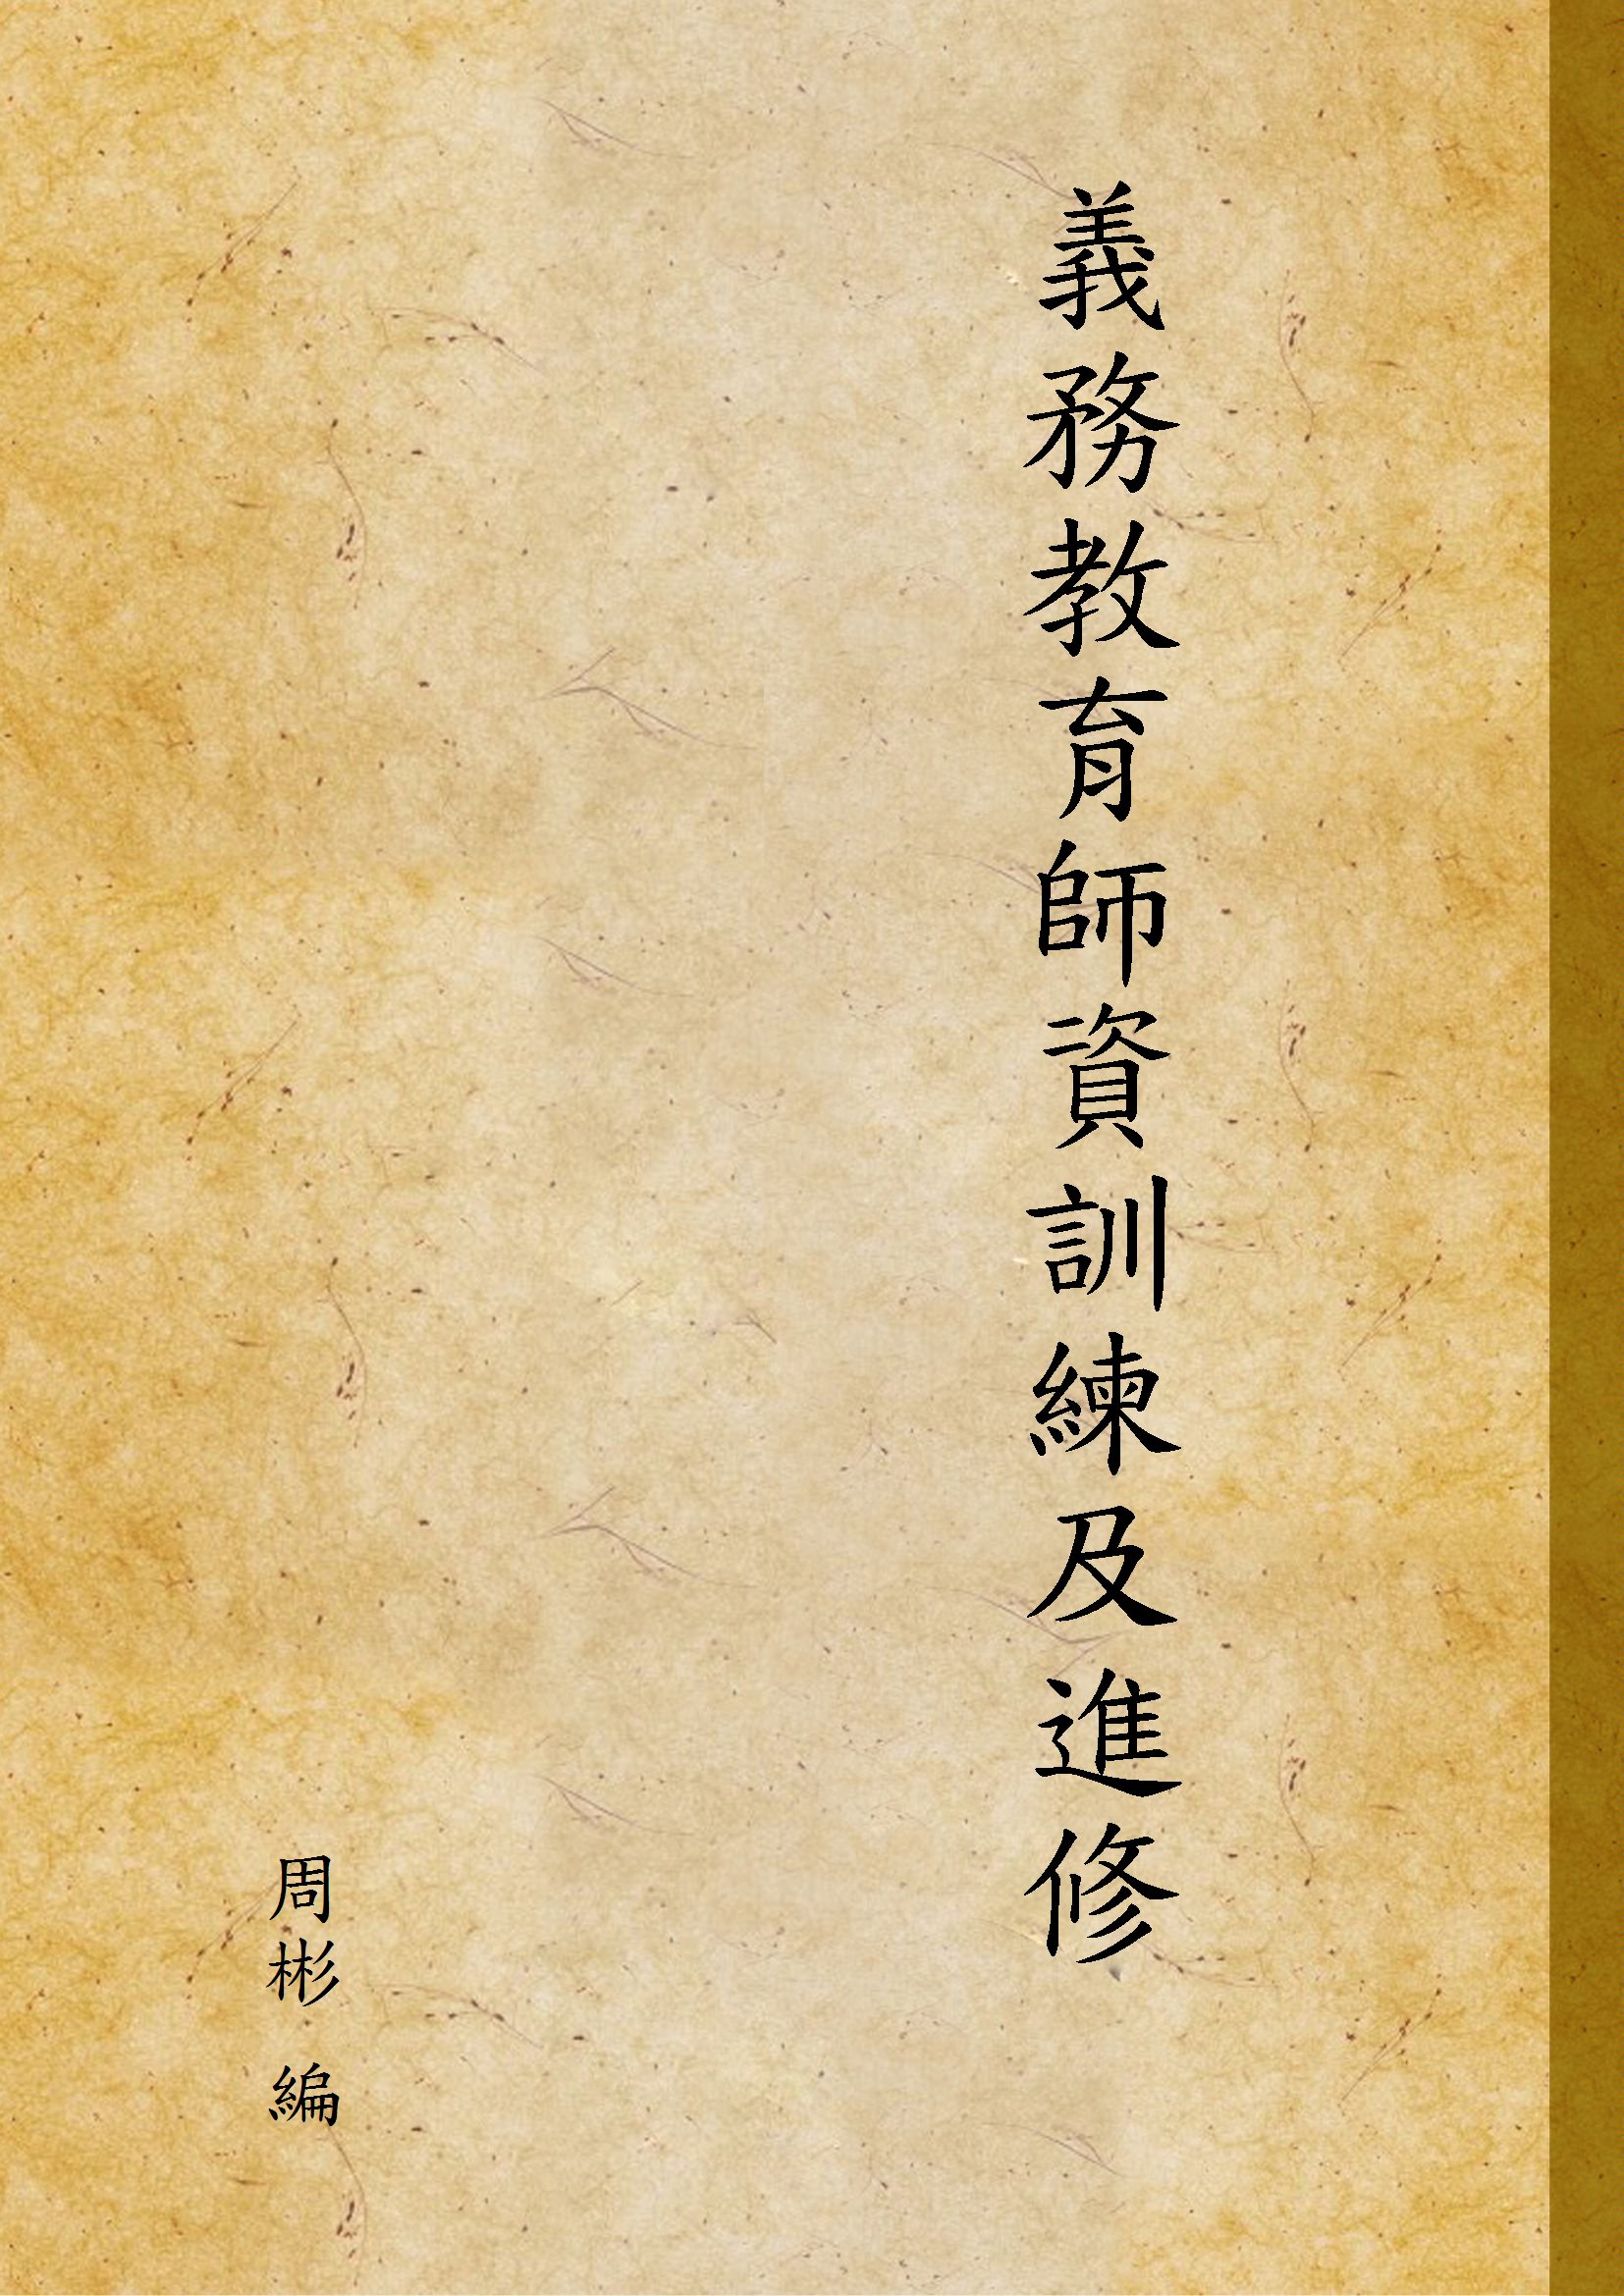 義務教育師資訓練及進修
周彬 編